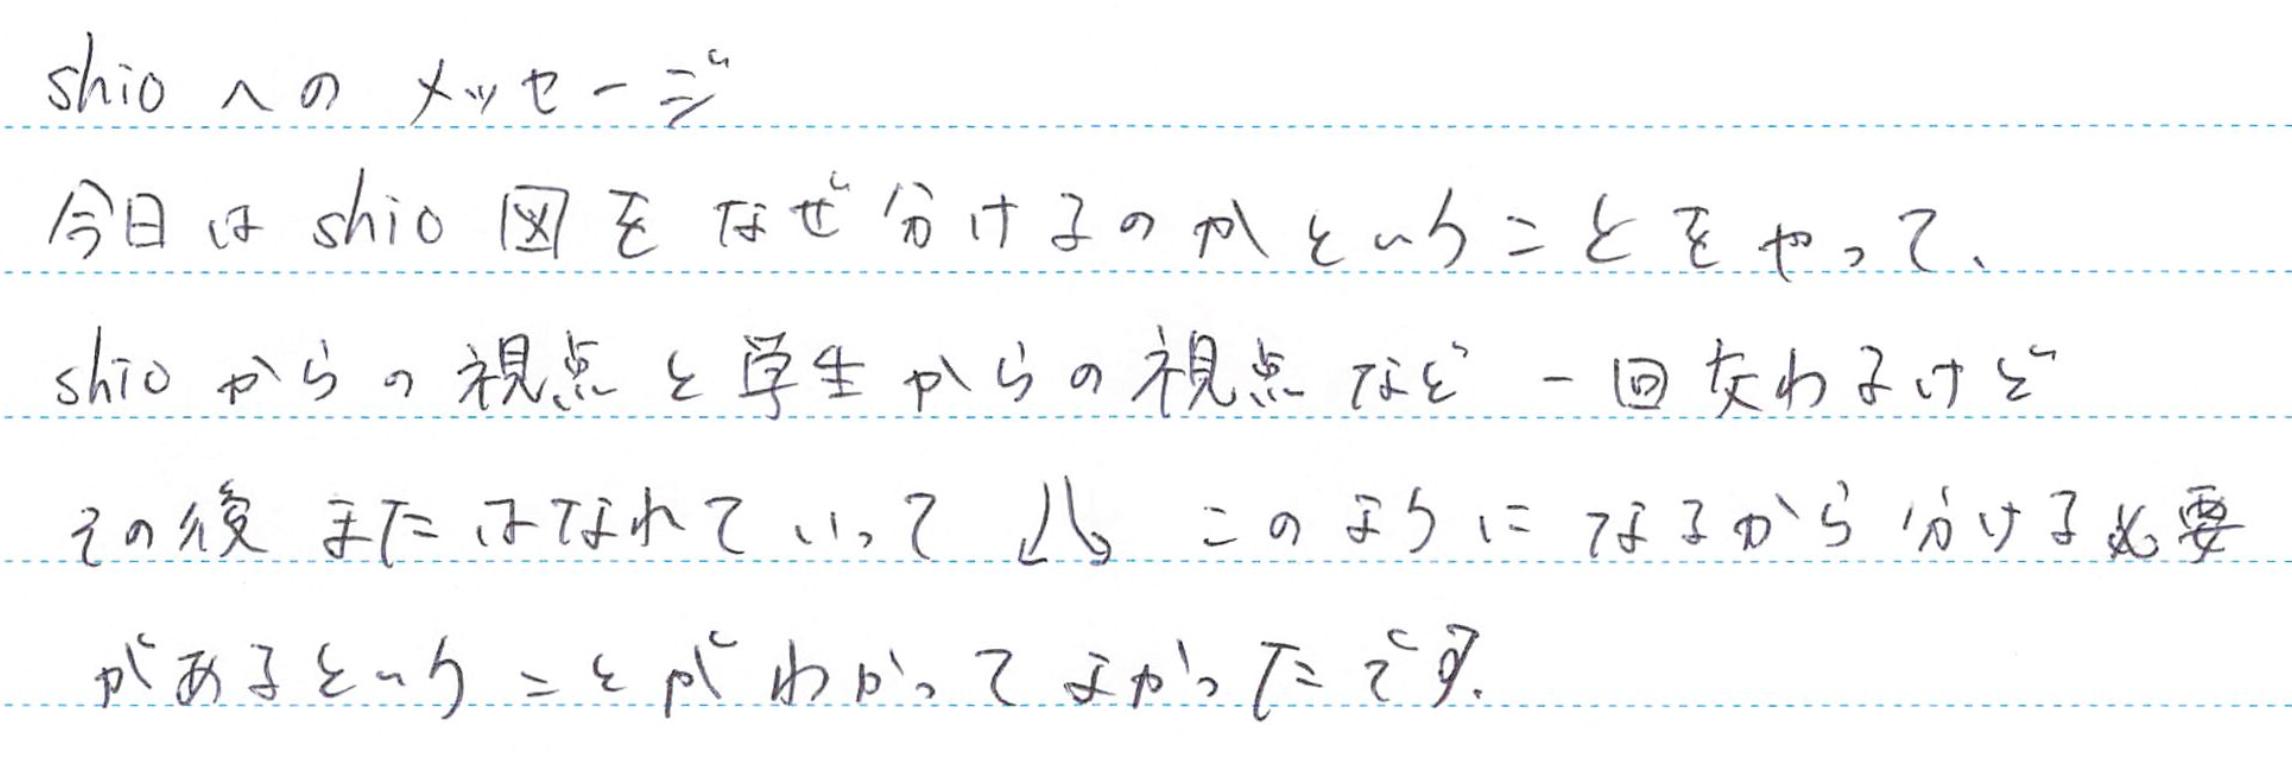 shioへのメッセージ
今日はshio図をなぜ分けるのかということをやって、
shioからの視点と学生からの視点など一回交わるけど
その後またはなれていって このようになるから分ける必要
があるということがわかってよかったです.